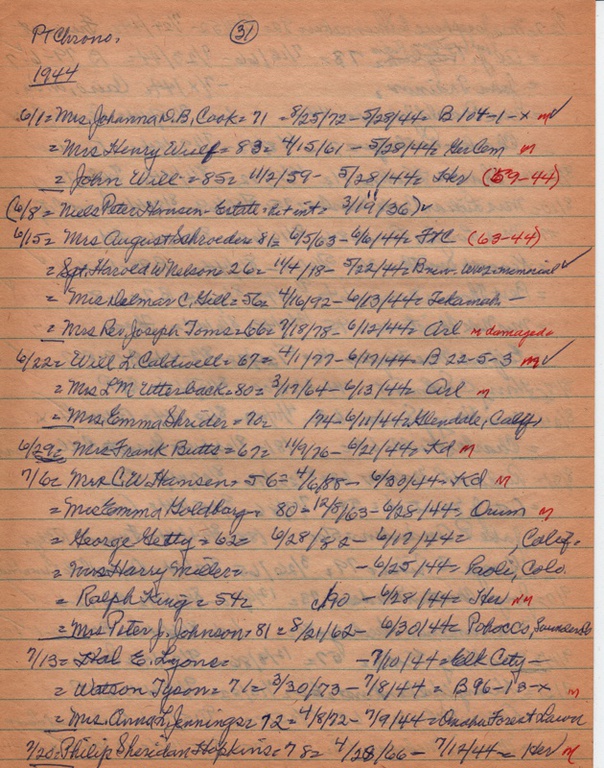 Pt Chrono, (31)
1944
6/1 = Mrs. Johanna D.B. Cook = 71 = 8/25/72 - 5/28/44 = B 104-1-x m ✓
= Mrs Henry Wulf = 83 = 4/15/61 - 5/28/44 = Ger Cem m
= John Will = 85 = 11/2/59 - 5/28/44 = Her (59-44)
(6/8 = Niels Peter Hansen Estate = 3/19/36) ✓
6/15 = Mrs August Schroeder = 81 = 6/5/63 - 6/6/44 = FtC (63-44)
= Sgt. Harold W Nelson = 26 = 11/4/18 - 5/22/44 = B new memorial ✓
= Mrs Delmar C. Gill = 52 = 4/16/92 - 6/13/44 = Tekamah -
= Mrs Rev Joseph Toms = 66 = 7/18/78 - 6/12/44 = Arl m damaged
6/22 = Will L. Caldwell = 67 = 4/1/77 - 6/17/44 = B 22-5-3 m ✓
= Mrs L M Utterback = 80 = 3/17/64 - 6/13/44 = Arl m
= Mrs. Emma Shrider = 70 = /74 - 6/11/44 = Glendale, Calif,
6/29 = Mrs Frank Butts = 67 = 11/9/76 - 6/21/44 = Kd m
7/6 = Mrs C.W. Hansen = 56 = 4/6/88 - 6/30/44 = Kd m
= Mrs Emma Goldberg = 80 = 12/8/63 - 6/28/44 = Orum m
= George Getty = 62 = 6/28/82 - 6/17/44 = , Calif.
= Mrs Harry Miller = - 6/25/44 = Paoli, Colo.
= Ralph King = 54 = /90 - 6/28/44 = Her m
= Mrs Peter J. Johnson = 81 = 8/21/62 - 6/30/44 = Pohocco, Saunders Co
7/13 = Hal E. Lyons = - 7/10/44 = Elk City -
= Watson Tyson = 71 = 3/30/73 - 7/8/44 = B 96-13-x m
= Mrs. Anna L Jennings = 72 = 4/8/72 - 7/9/44 = Omaha Forest Lawn
7/20 = Philip Sheridan Hopkins = 78 = 4/28/66 - 7/12/44 = Her m